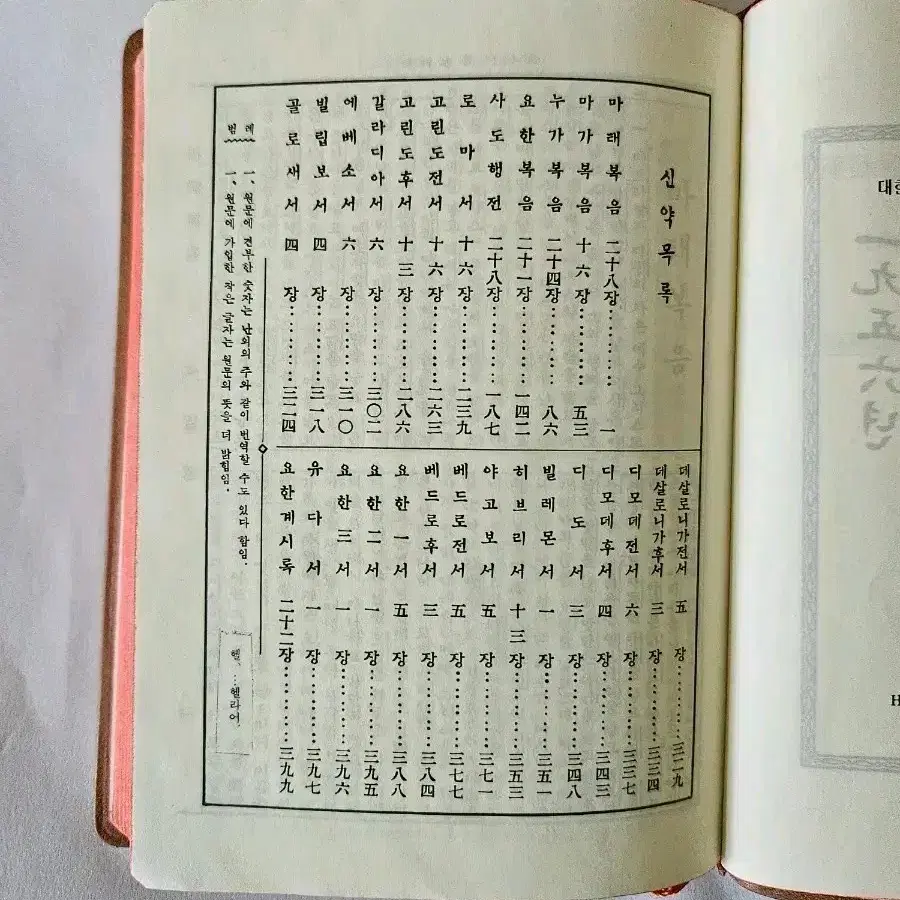 신약목록
마태복음 二十八장………… 一
마가복음 十六장………… 五三
누가복음 二十四장………… 八六
요한복음 二十一장………… 一四二
사도행전 二十八장………… 一八七
로마서 十六장………… 二三九
고린도전서 十六장………… 二六三
고린도후서 十三장………… 二八六
갈라디아서 六장………… 三〇二
에베소서 六장………… 三一〇
빌립보서 四장………… 三一八
골로새서 四장………… 三二四
데살로니가전서 五장………… 三二九
데살로니가후서 三장………… 三三四
디모데전서 六장………… 三三七
디모데후서 四장………… 三四三
디도서 三장………… 三四八
빌레몬서 一장………… 三五一
히브리서 十三장………… 三五三
야고보서 五장………… 三七一
베드로전서 五장………… 三七七
베드로후서 三장………… 三八四
요한一서 五장………… 三八八
요한二서 一장………… 三九五
요한三서 一장………… 三九六
유다서 一장………… 三九七
요한계시록 二十二장………… 三九九
범례
一、원문에 견부한 숫자는 난외의 주와 같이 번역할 수도 있다 함임.
一、원문에 가입한 작은 글자는 원문의 뜻을 더 밝힘임.
헬,…헬라어,
대한
一九五六년
H